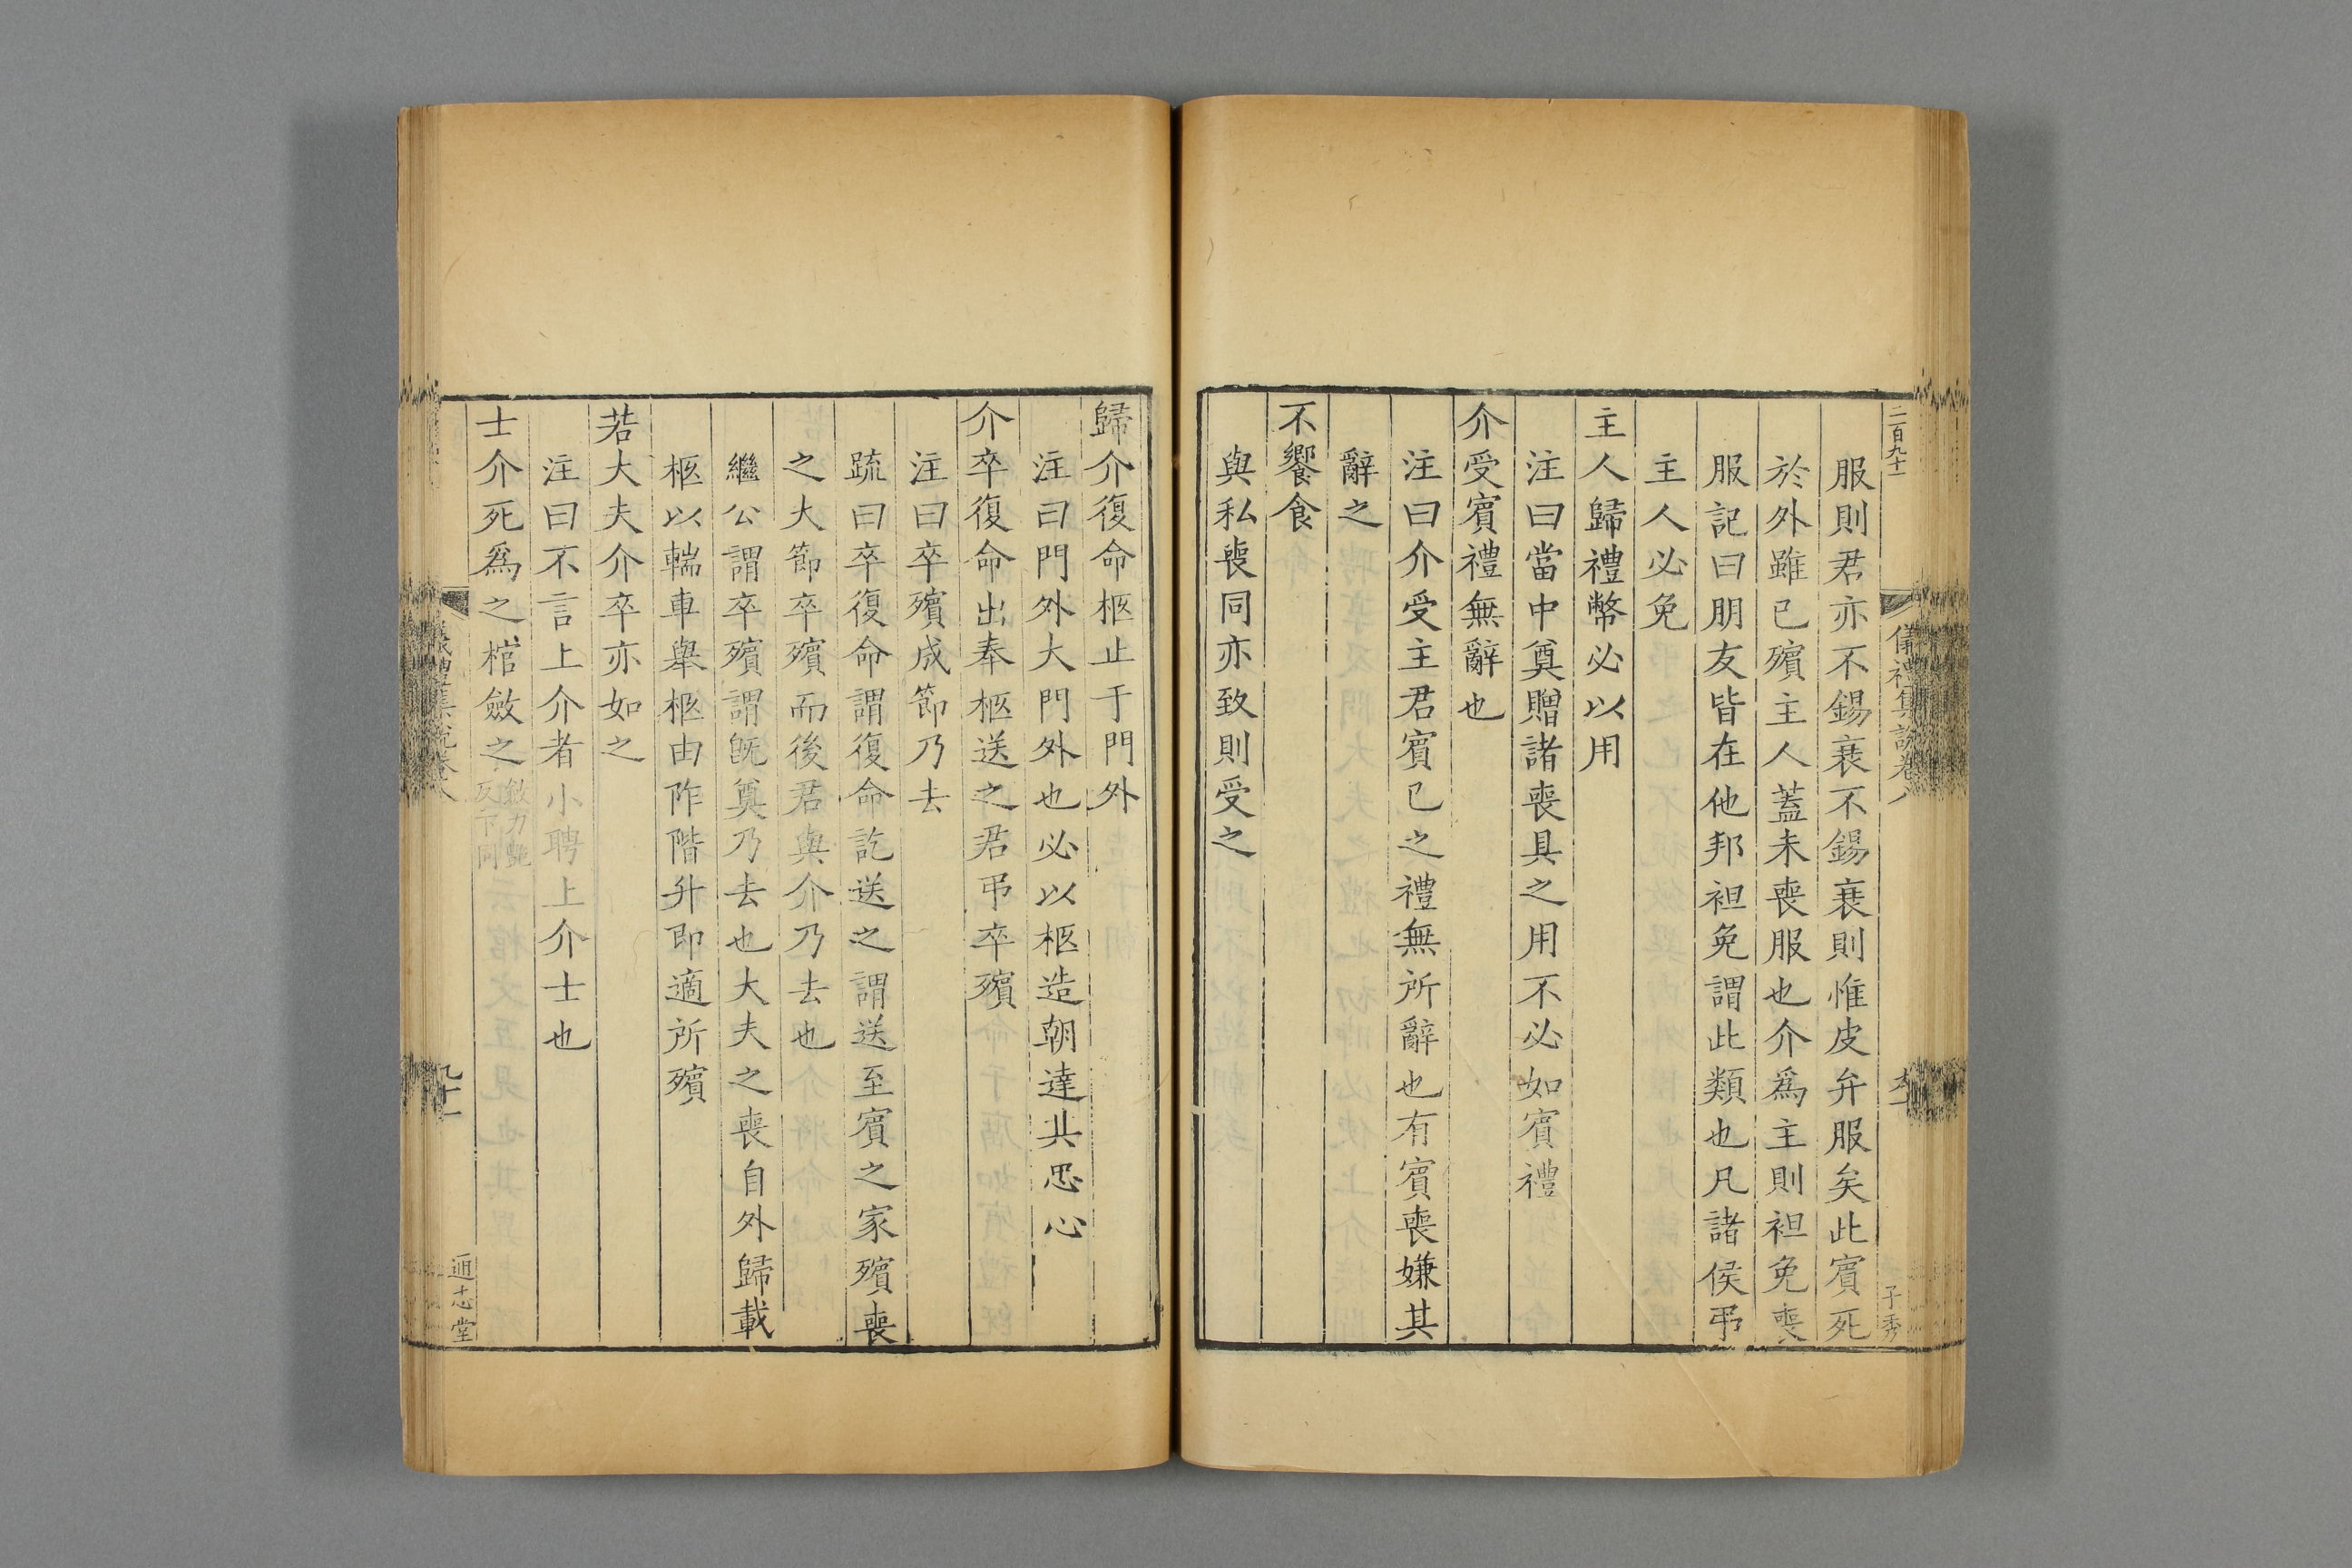 二百九十一
儀禮集說卷八
子秀
服則君亦不錫衰不錫衰則惟皮弁服矣此賓死
於外雖已殯主人蓋未喪服也介爲主則袒免喪
服記曰朋友皆在他邦袒免謂此類也凡諸侯弔
主人必免
主人歸禮幣必以用
注曰當中奠贈諸喪具之用不必如賓禮
介受賓禮無辭也
注曰介受主君賓已之禮無所辭也有賓喪嫌其
辭之
不饗食
與私喪同亦致則受之
歸介復命柩止于門外
注曰門外大門外也必以柩造朝達其忠心
介卒復命出奉柩送之君弔卒殯
注曰卒殯成節乃去
疏曰卒復命謂復命訖送之謂送至賓之家殯喪
之大節卒殯而後君與介乃去也
繼公謂卒殯謂既奠乃去也大夫之喪自外歸載
柩以輲車舉柩由阼階升即適所殯
若大夫介卒亦如之
注曰不言上介者小聘上介士也
士介死爲之棺斂之斂力豔反下同
九十一
通志堂